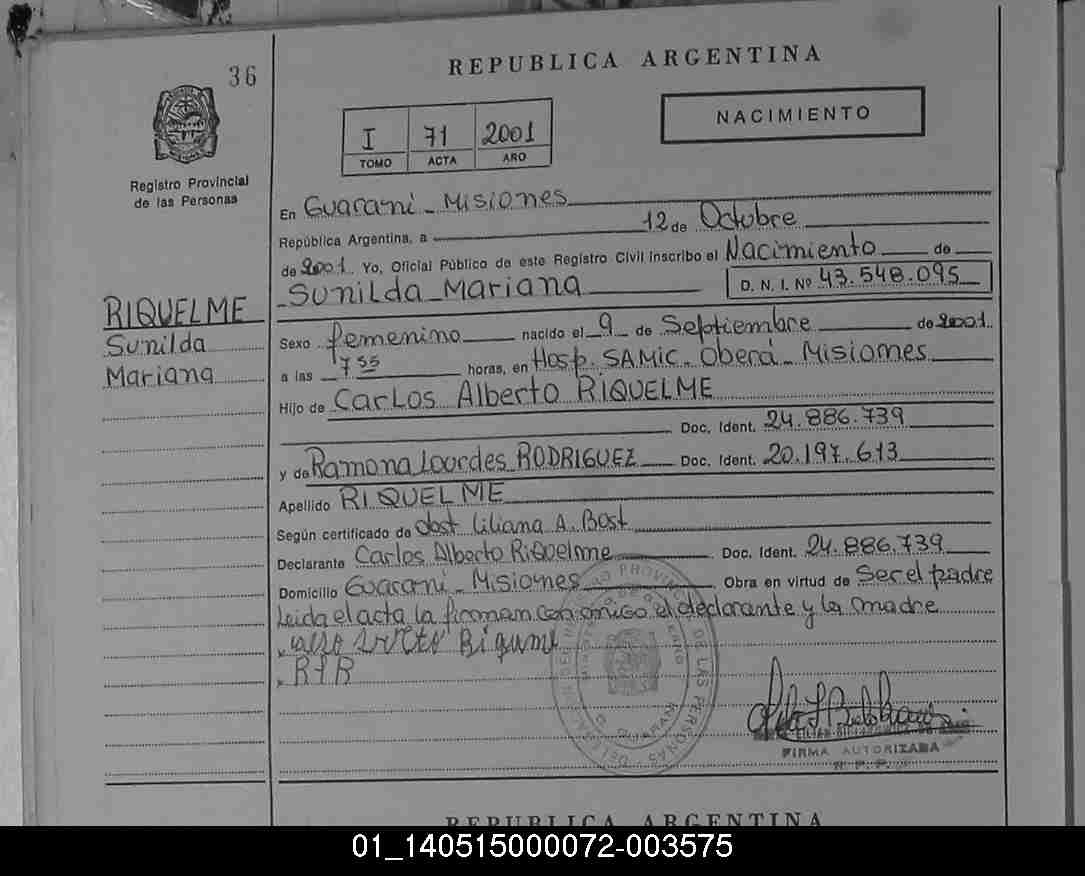 36
REPUBLICA ARGENTINA
NACIMIENTO
I 71 2001
TOMO ACTA AÑO
Registro Provincial
de las Personas
En Guarani - Misiones
República Argentina, a 12 de Octubre
de 2001. Yo, Oficial Público de este Registro Civil inscribo el Nacimiento de
Sunilda Mariana D. N. I. Nº 43.548.095
RIQUELME
Sunilda
Mariana
Sexo femenino nacido el 9 de Septiembre de 2001.
a las 7 55 horas, en Hosp. SAMIC. Oberá - Misiones
Hijo de Carlos Alberto RIQUELME
Doc. Ident. 24.886.739
y de Ramona Lourdes RODRIGUEZ Doc. Ident. 20.197.613
Apellido RIQUELME
Según certificado de Obst Liliana A. Bost
Declarante Carlos Alberto Riquelme Doc. Ident. 24.886.739
Domicilio Guarani - Misiones Obra en virtud de Ser el padre
Leida el acta la firman conmigo el declarante y la madre
FIRMA AUTORIZADA
R. P. P.
REPUBLICA ARGENTINA
01_140515000072-003575